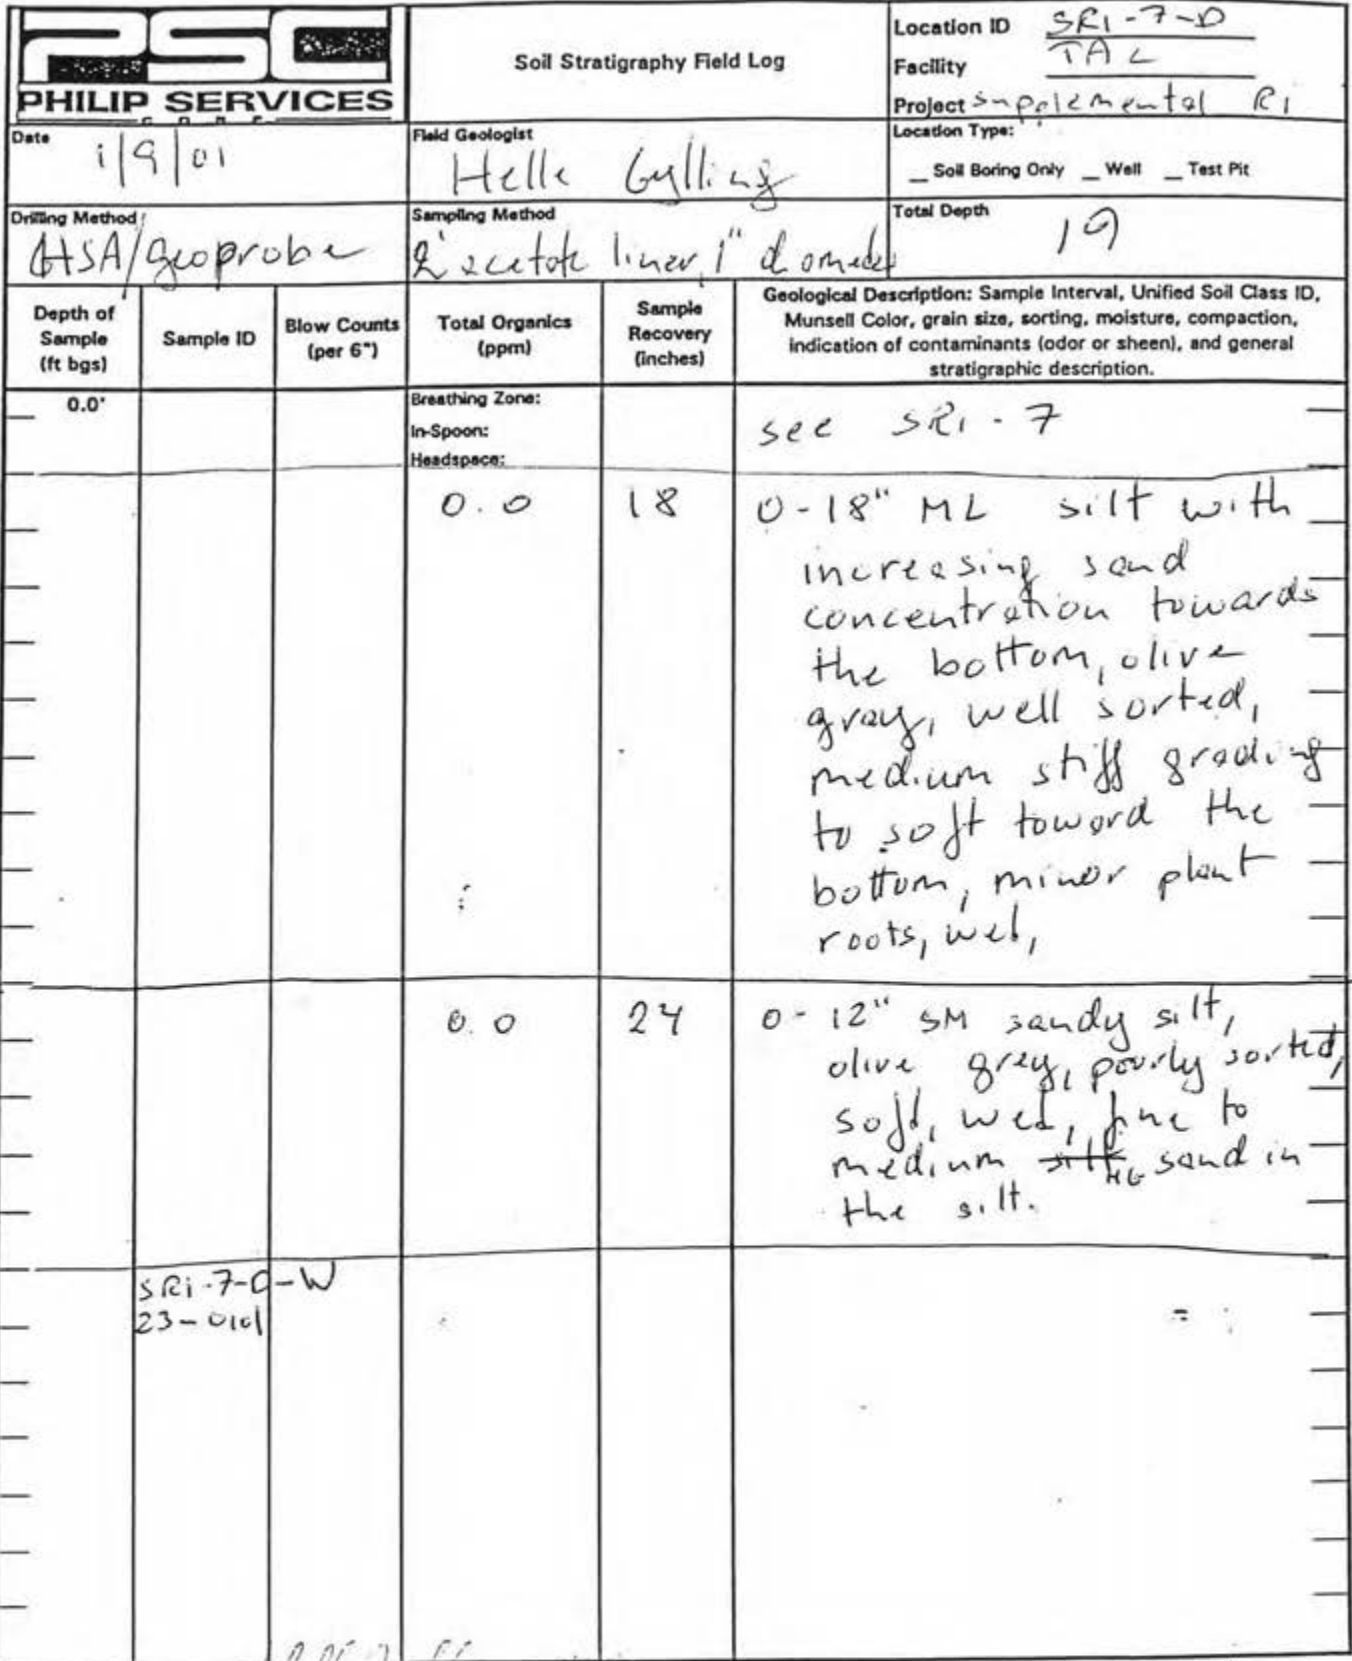 PSC
PHILIP SERVICES
CORP
Soil Stratigraphy Field Log
Location ID SRI-7-D
Facility TAC
Project Supplemental RI
Date 1/9/01
Field Geologist Helle Gylling
Location Type:
_ Soil Boring Only _ Well _ Test Pit
Drilling Method HSA/geoprobe
Sampling Method 2' acetate liner, 1" diameter
Total Depth 19
Depth of Sample (ft bgs)
Sample ID
Blow Counts (per 6")
Total Organics (ppm)
Sample Recovery (inches)
Geological Description: Sample Interval, Unified Soil Class ID,
Munsell Color, grain size, sorting, moisture, compaction,
indication of contaminants (odor or sheen), and general
stratigraphic description.
0.0'
Breathing Zone:
In-Spoon:
Headspace:
see SRI-7
0.0 18 0-18" ML silt with
increasing sand
concentration towards
the bottom, olive
gray, well sorted,
medium stiff grading
to soft toward the
bottom, minor plant
roots, wet,
0.0 24 0-12" SM sandy silt,
olive grey, poorly sorted,
soft, wet, fine to
medium silt HG sand in
the silt.
SRI-7-D-W
23-0101